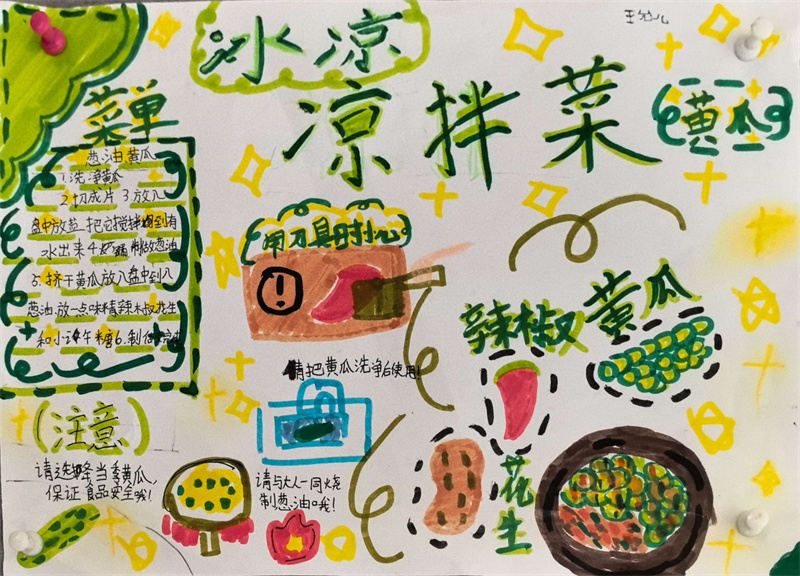 冰凉
凉拌菜
黄瓜
菜单
葱油黄瓜
1.洗净黄瓜
2.切成片 3.放入
盘中放盐 把它搅拌到有
水出来 4. 制做葱油
5.挤干黄瓜放入盘中到入
葱油.放一点味精辣椒花生
和小 糖6.制作完
用刀具时小心
!
请把黄瓜洗净后使用!
辣椒
黄瓜
(注意)
请选择当季黄瓜,
保证食品安全哦!
请与大人一同烧
制葱油哦!
花生